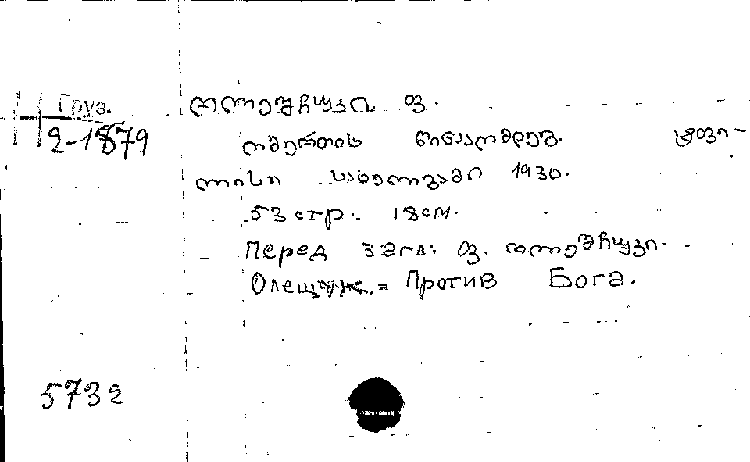 Груз.
2-1879
ოლეშჩუკი ფ.
ღმერთის წინააღმდეგ. ტფი-
ლისი სახელგამი 1930.
53 стр. 18 см.
Перед загл: ფ. ოლეშჩუკი.
Олещук. = Против Бога.
5732